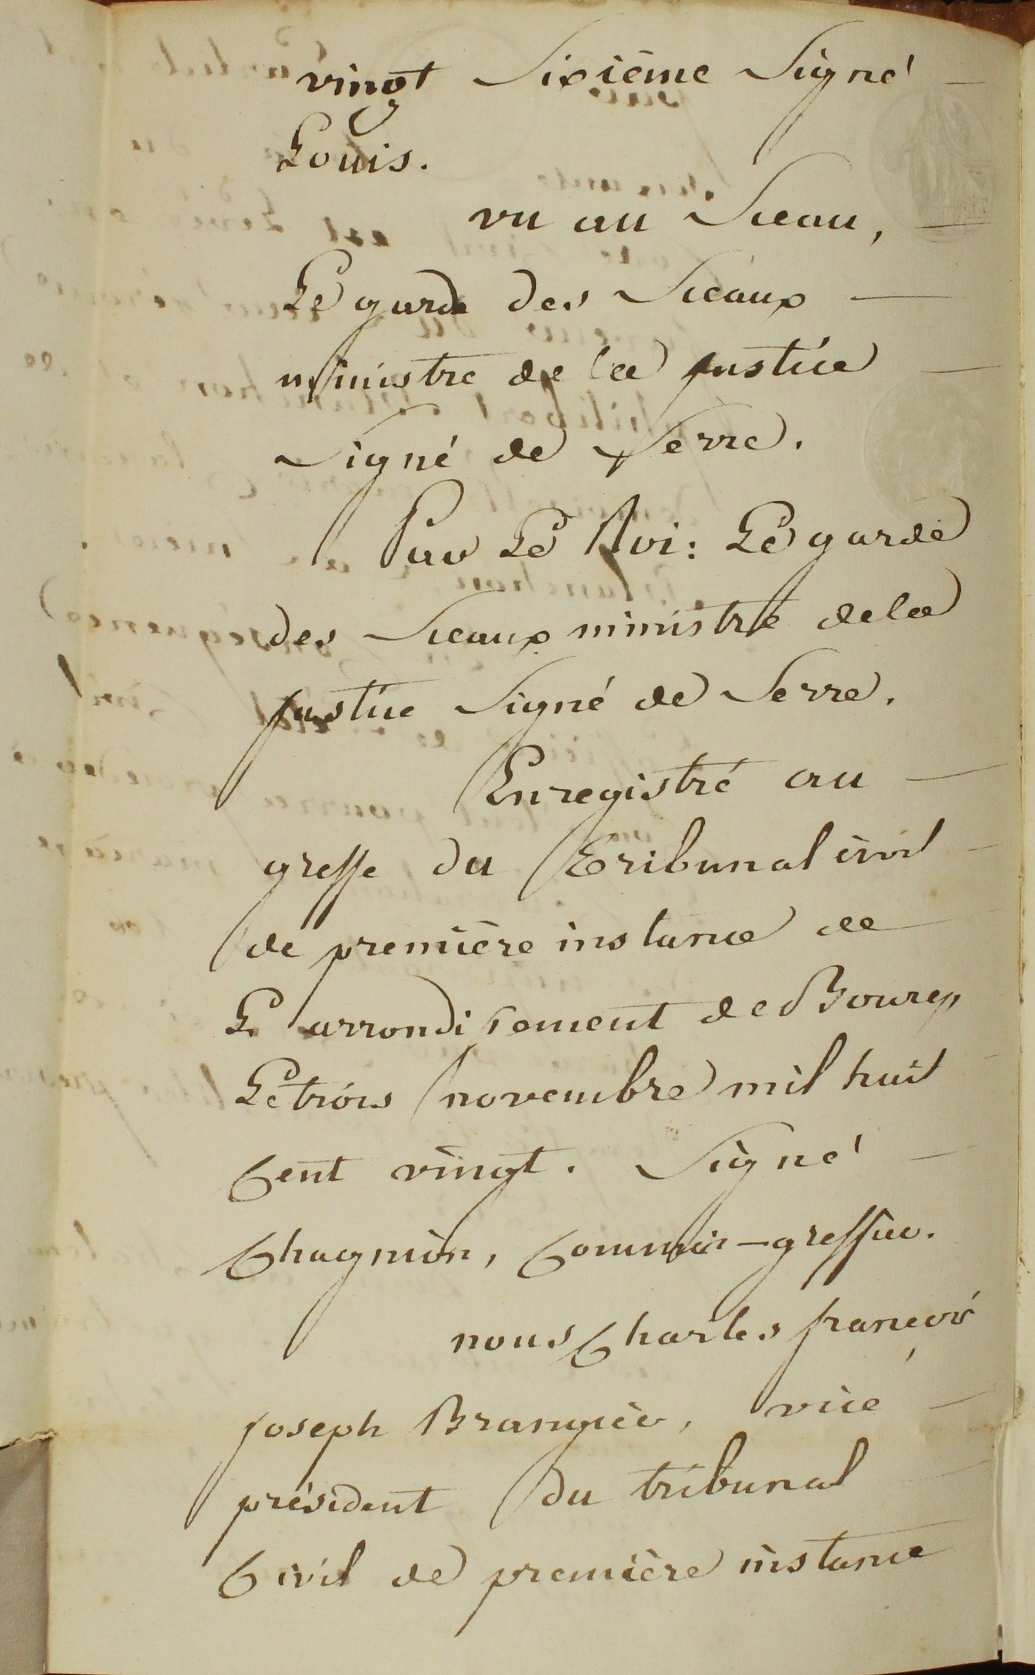 vingt Sixième Signé
Louis.
vu au Sceau,
Le garde des Sceaux
ministre de la justice
Signé de Serre.
Par Le Roi : Le garde
des Sceaux ministre de la
justice Signé de Serre.
Enregistré au
greffe du Tribunal civil
de première instance de
L'arrondissement de Bourg
Le trois novembre mil huit
Cent vingt. Signé
Chagnion, Commis-greffier.
nous Charles françois
joseph Brangier, vice
président du tribunal
Civil de première instance